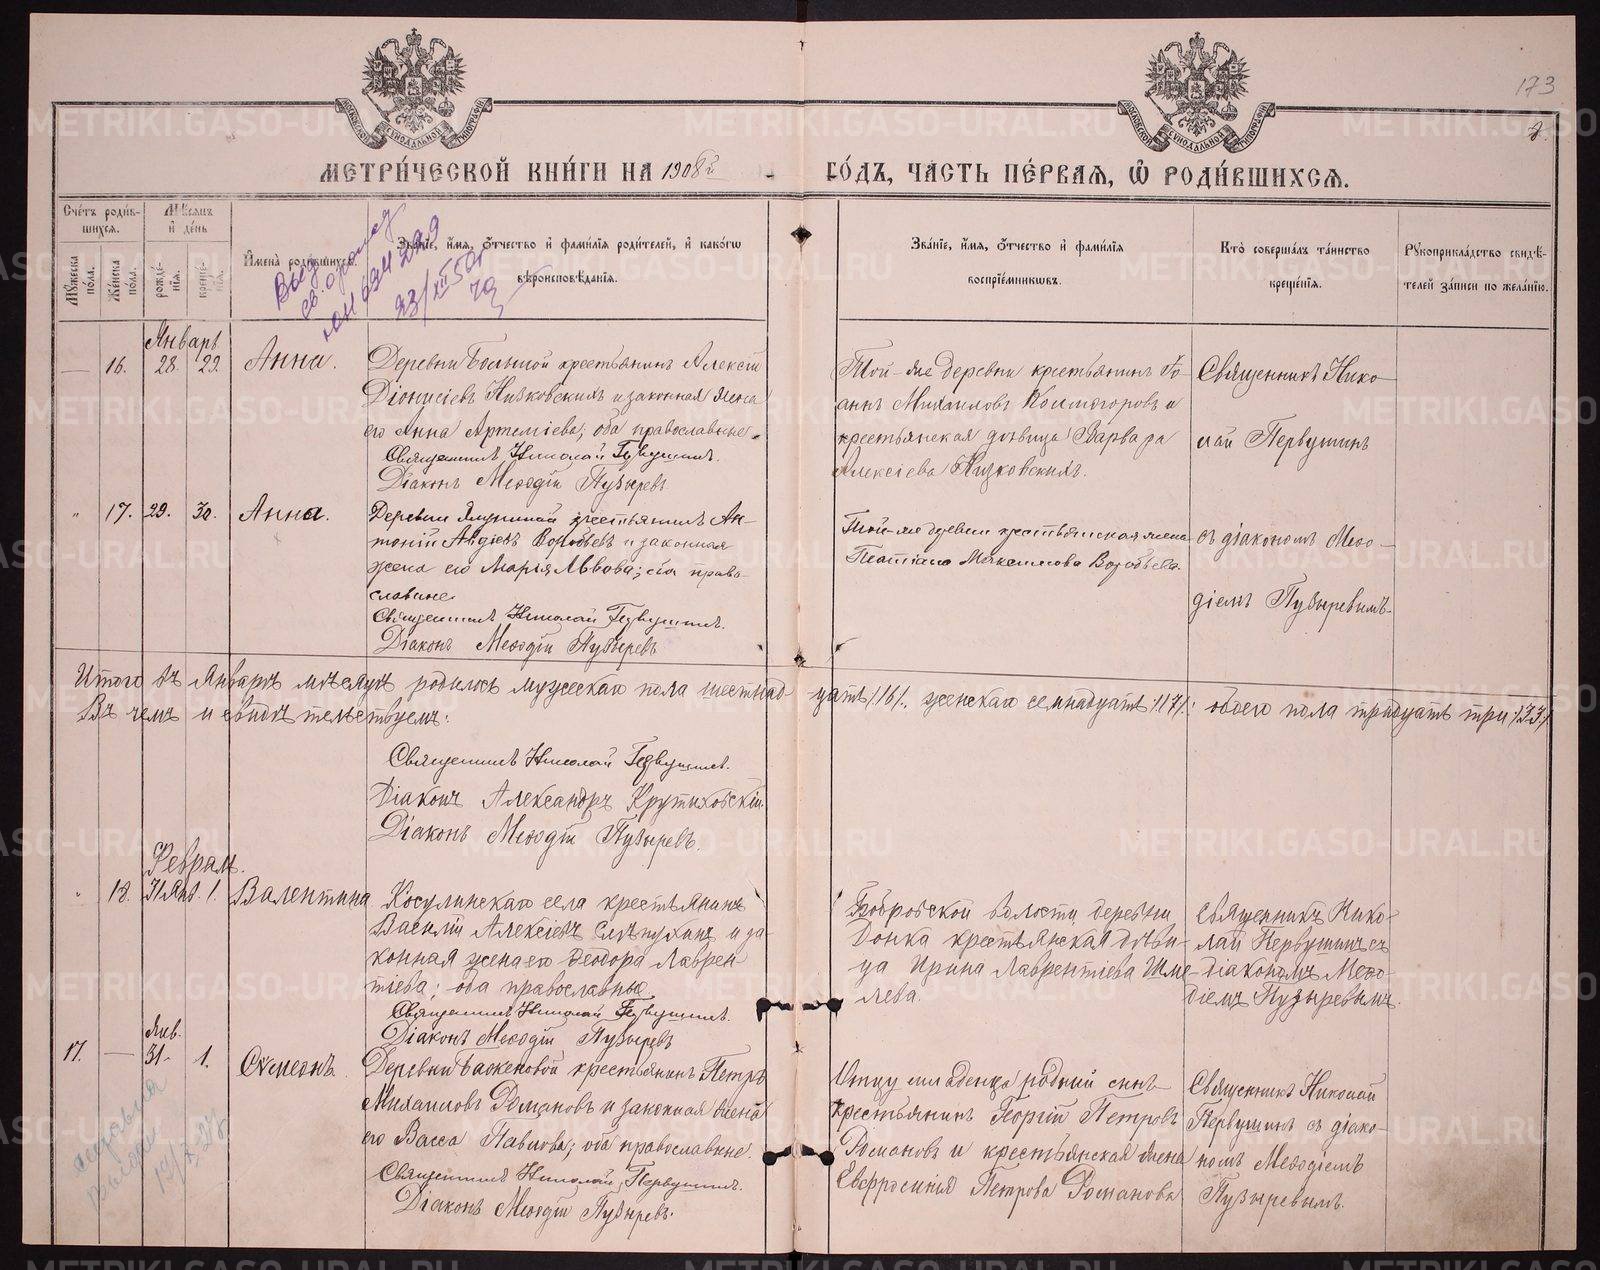 173
2.
МЕТРИ́ЧЕСКОЙ КНИ́ГИ НА 1908й ГО́ДЪ, ЧАСТЬ ПЕ́РВАЯ, Ѡ РОДИ́ВШИХСЯ.
Сче́тъ роди́в-
шихся.
Му́жеска по́ла.
Же́нска по́ла.
Мѣ́сяцъ
и де́нь
рожде́-
нія.
креще́-
нія.
Имена̀ роди́вшихся.
Зва́ніе, и́мя, о́тчество и фами́лія роди́телей, и како́гѡ
вѣроисповѣ́данія.
Зва́ніе, и́мя, о́тчество и фами́лія
воспріе́мниковъ.
Кто̀ соверша́лъ та́инство
креще́нія.
Рукоприкла́дство свидѣ́-
телей за́писи по жела́нію.
23/XII 50г
Январь
— 16. 28. 29. Анна.
Деревни Большой крестьянинъ Алексій
Діонисіевъ Низковскихъ и законная жена
его Анна Артеміева; оба православные.
Священникъ Николай Первушинъ.
Діаконъ Меѳодій Пузыревъ
Той-же деревни крестьянинъ Іо-
аннъ Михаиловъ Колмогоровъ и
крестьянская дѣвица Варвара
Алексіева Низковскихъ.
Священникъ Нико-
лай Первушинъ
" 17. 29. 30. Анна.
крестьянинъ Ан-
тоній Авдіевъ Воробьевъ и законная
жена его Марія Львова; оба право-
славные
Священникъ Николай Первушинъ.
Діаконъ Меѳодій Пузыревъ
Той-же деревни крестьянская жена
Татіана Максимова Воробьева.
съ діакономъ Меѳо-
діемъ Пузыревымъ.
Итого въ Январѣ мѣсяцѣ родилось мужескаго пола шестнад- цать /16/, женскаго семнадцать /17/: обоего пола тридцать три /33/.
Въ чемъ и свидѣтельствуемъ:
Священникъ Николай Первушинъ.
Діаконъ Александръ Крутиховскій.
Діаконъ Меѳодій Пузыревъ.
Февраль.
" 18. 31 Янв. 1. Валентина
Косулинскаго села крестьянинъ
Василій Алексіевъ Слѣпухинъ и за-
конная жена его Ѳеодора Лаврен-
тіева; оба православные.
Священникъ Николай Первушинъ.
Діаконъ Меѳодій Пузыревъ
Бобровской волости деревни
крестьянская дѣви-
ца Ирина Лаврентіева Шме-
лева.
Священникъ Нико-
лай Первушинъ съ
діакономъ Меѳо-
діемъ Пузыревымъ.
Янв.
17. — 31. 1. Сѵмеонъ.
Деревни Баженовой крестьянинъ Петръ
Михаиловъ Романовъ и законная жена
его Васса Павлова; оба православные.
Священникъ Николай Первушинъ.
Діаконъ Меѳодій Пузыревъ.
Отцу младенца родной сынъ
крестьянинъ Георгій Петровъ
Романовъ и крестьянская жена
Евфросинія Петрова Романова
Священникъ Николай
Первушинъ съ діако-
номъ Меѳодіемъ
Пузыревымъ.
METRIKI.GASO-URAL.RU